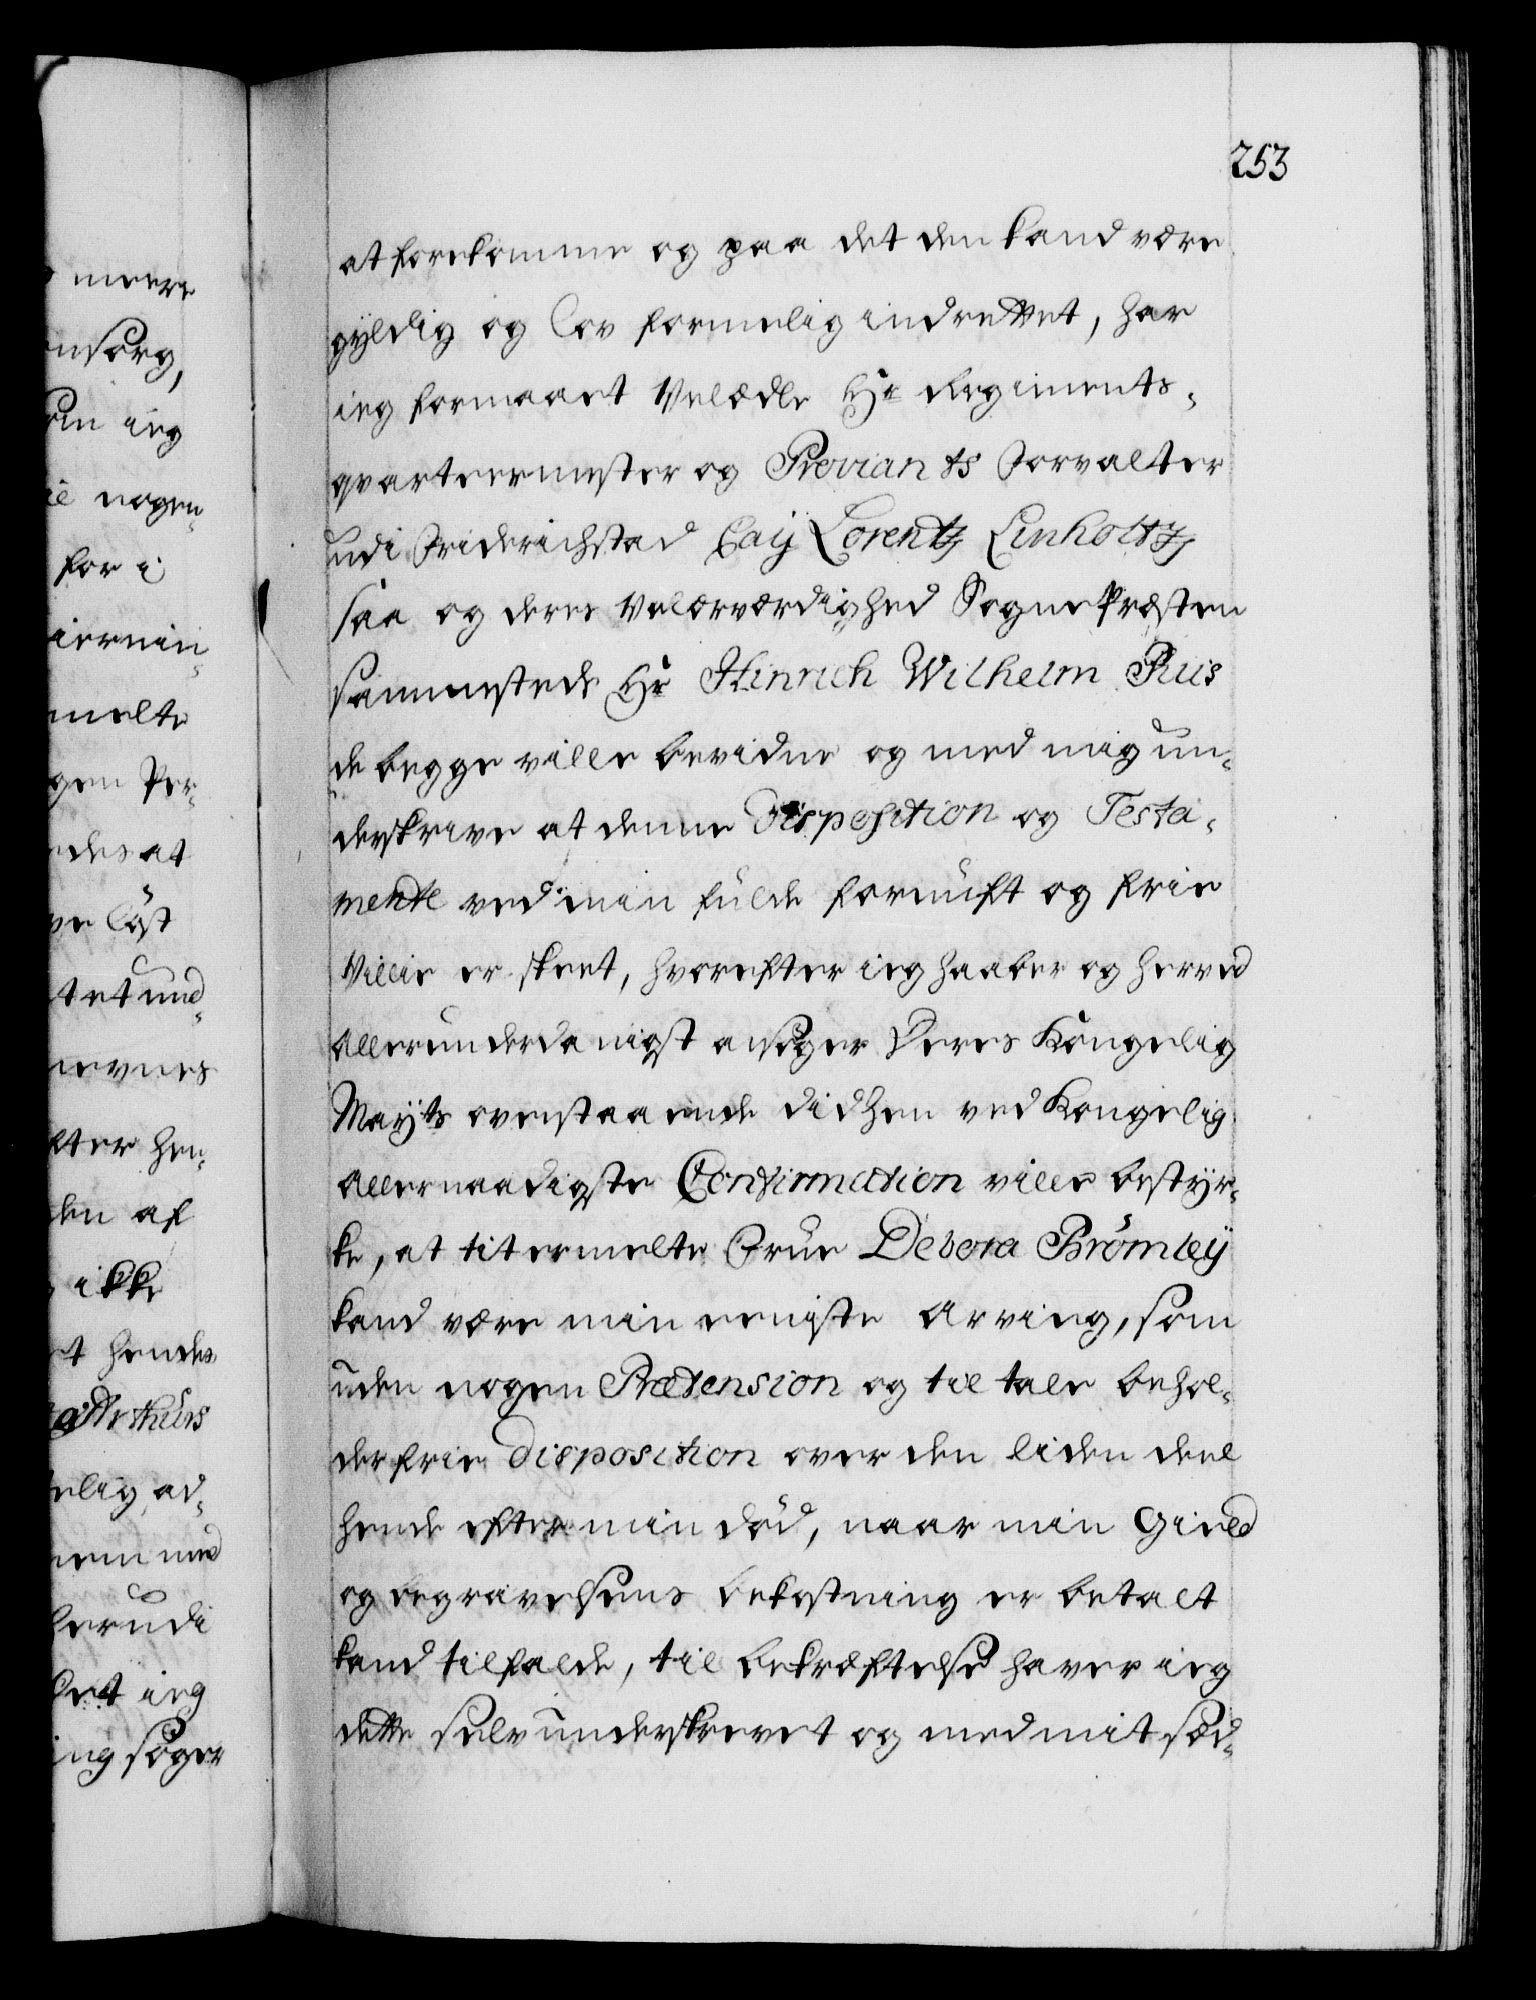 253
at forekomme og paa det den kand være
gyldig og Lov formelig indrettet, har
ieg formaaet Velædle Hr Regiments-
qvarteermester og Proviants Forvalter
udi Friderichstad Caij Lorentz Linholtz
saa og deres Velærværdighed SognePræsten
sammestede Hr Hinrich Wilhelm
de begge ville bevidne og med mig un-
derskrive at denne Disposition og Testa-
mente ved min fulde fornuft og frie
Villie er skeet, hvorefter ieg haaber og herved
allerunderdanigst ansøger Deres Kongelig
Mayts ovenstaaende didhen ved Kongelig
allernaadigste Confirmation ville bestyr-
ke, at titermelte Frue Debora Brömleÿ
kand være min eeniste Arving, som
uden nogen Prætension og til tale behol-
der frie Disposition over den liden deel
hende efter min död, naar min Gield
og begravelsens bekostning er betalt
kand tilfalde, til bekræftelse haver ieg
dette selv underskrevet og med mit sæd-
meere
omsorg,
ieg
nogen
for i
melte
Per-
at
löst
und-
nevnes
efter hen-
den af
ikke
hendes
Arthurs
ad-
med
herudi
ieg
söger